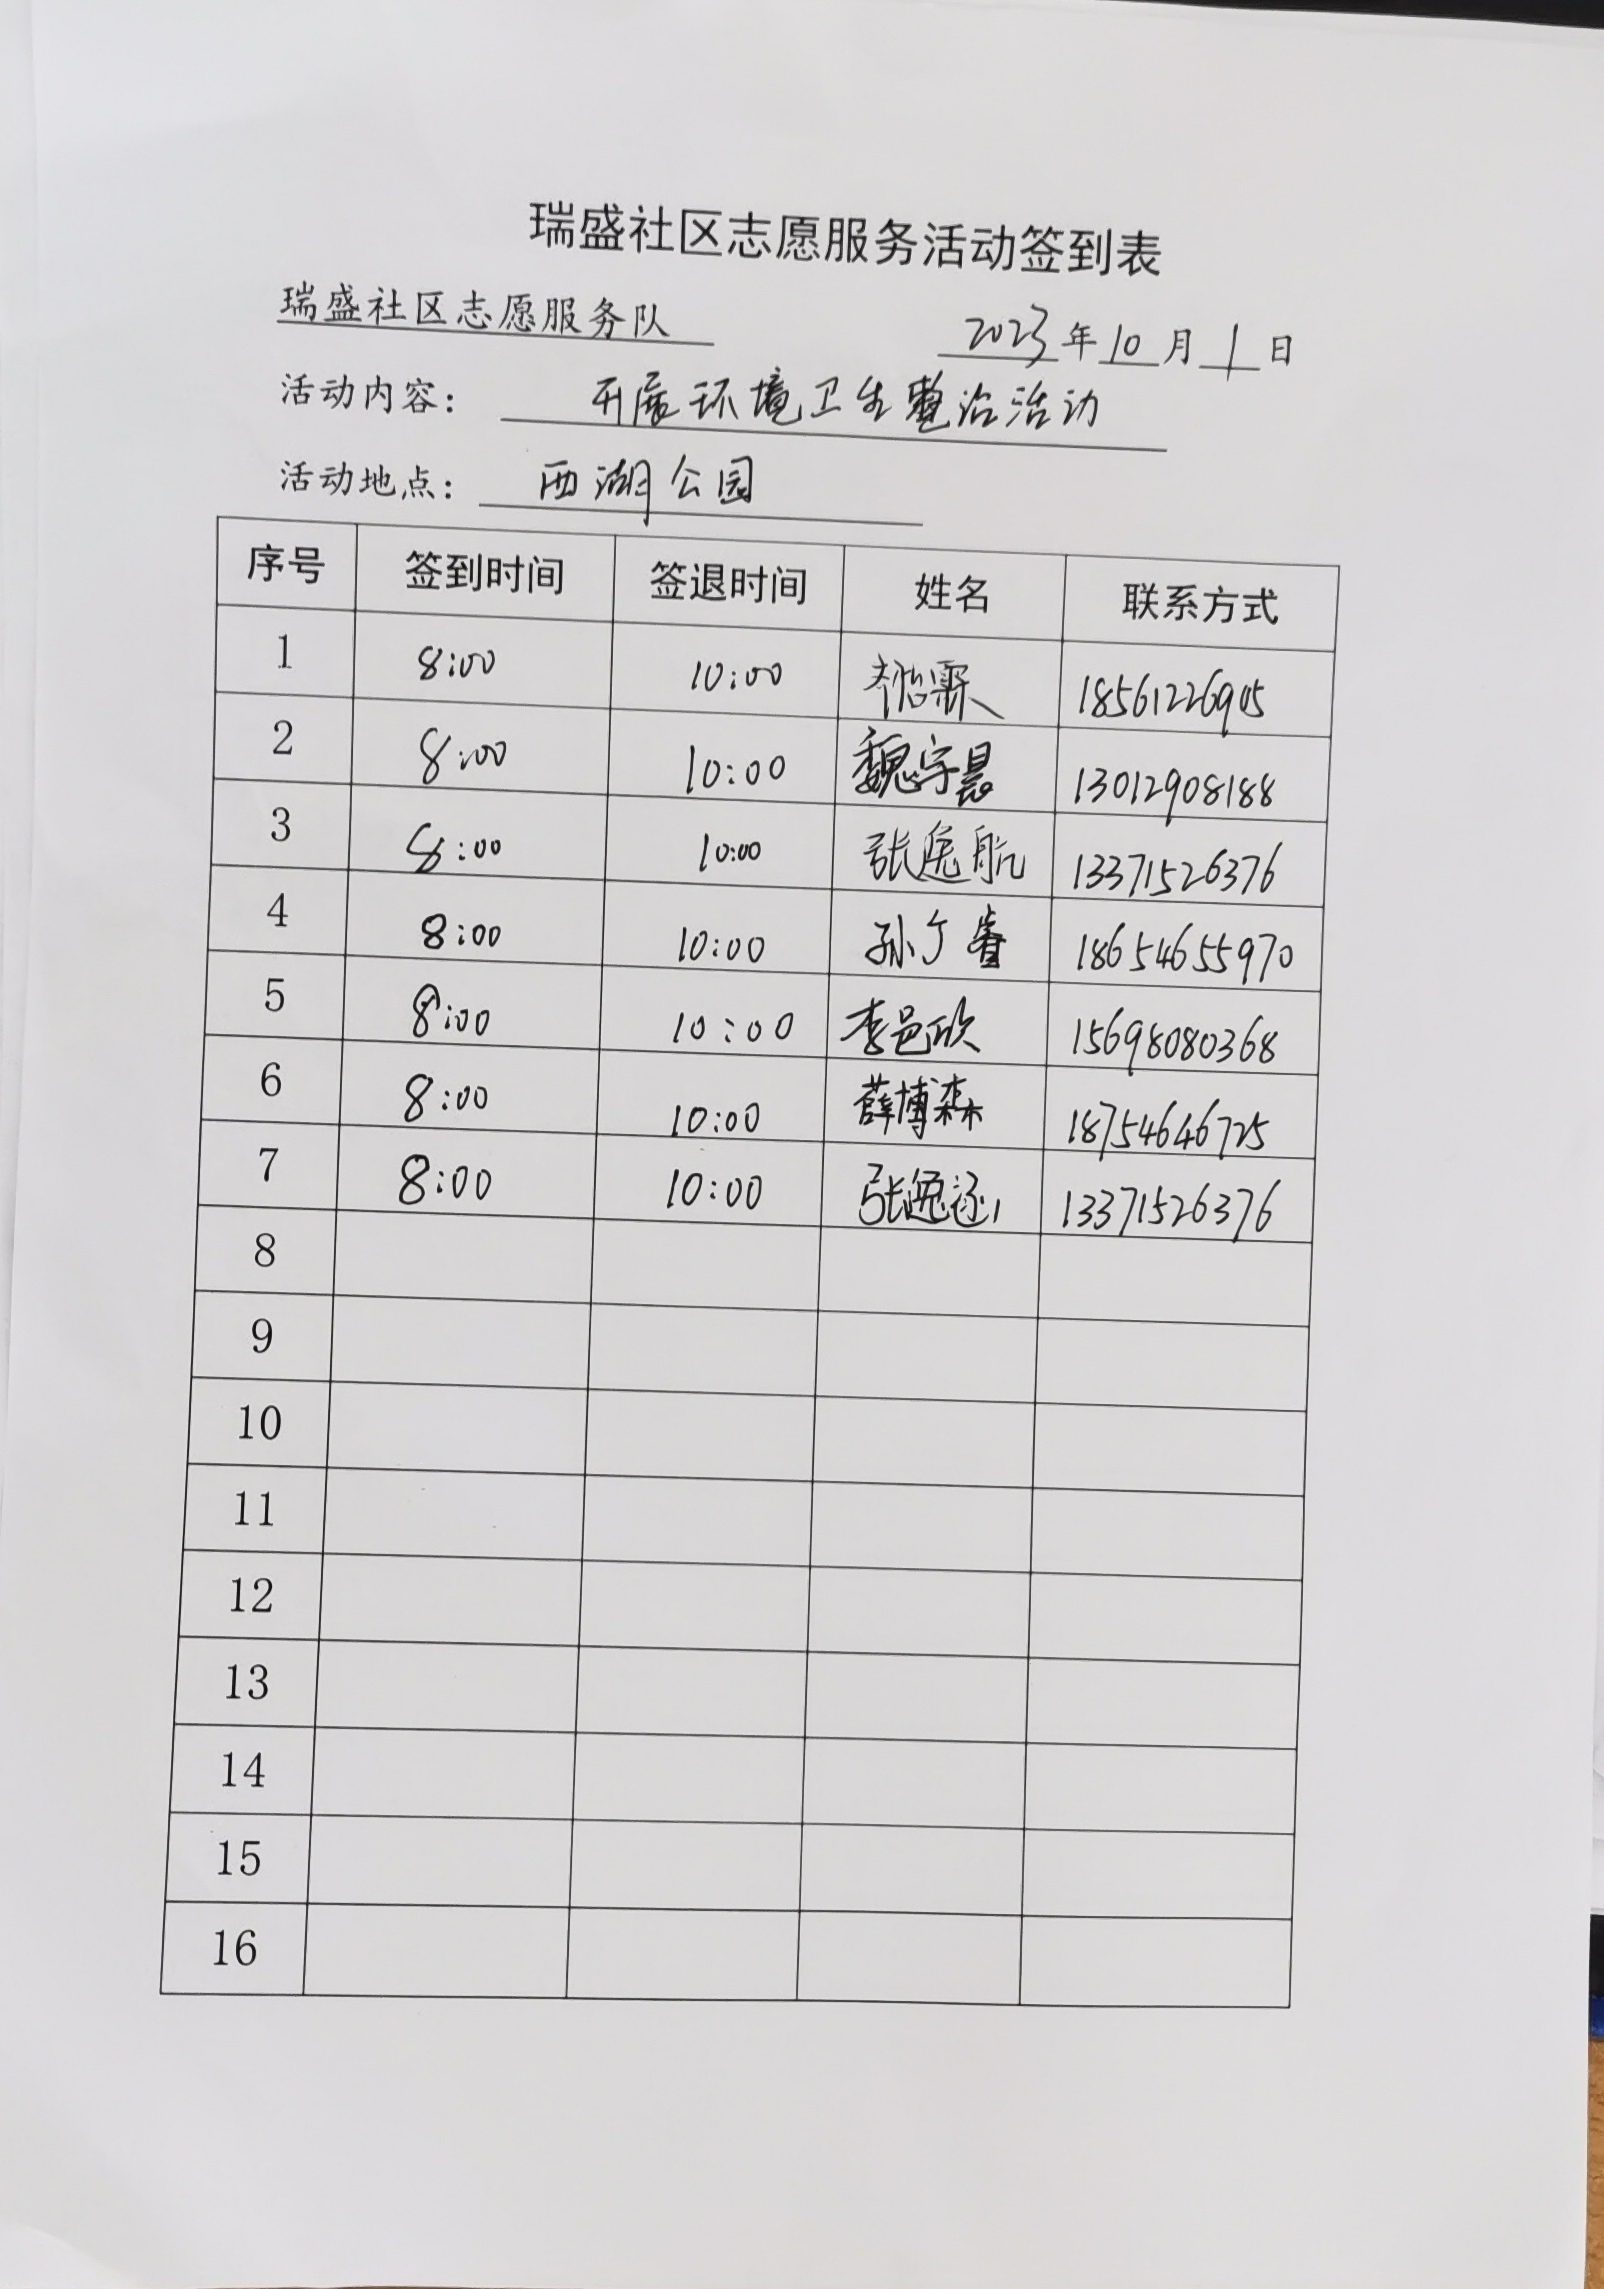 瑞盛社区志愿服务活动签到表
瑞盛社区志愿服务队 2023年10月1日
活动内容： 开展环境卫生整治活动
活动地点： 西湖公园
序号 签到时间 签退时间 姓名 联系方式
1 8:00 10:00 18561226905
2 8:00 10:00 魏宇晨 13012908188
3 8:00 10:00 张逸航 13371526376
4 8:00 10:00 18654655970
5 8:00 10:00 李邑欣 15698080368
6 8:00 10:00 薛博森 18754646725
7 8:00 10:00 13371526376
8
9
10
11
12
13
14
15
16